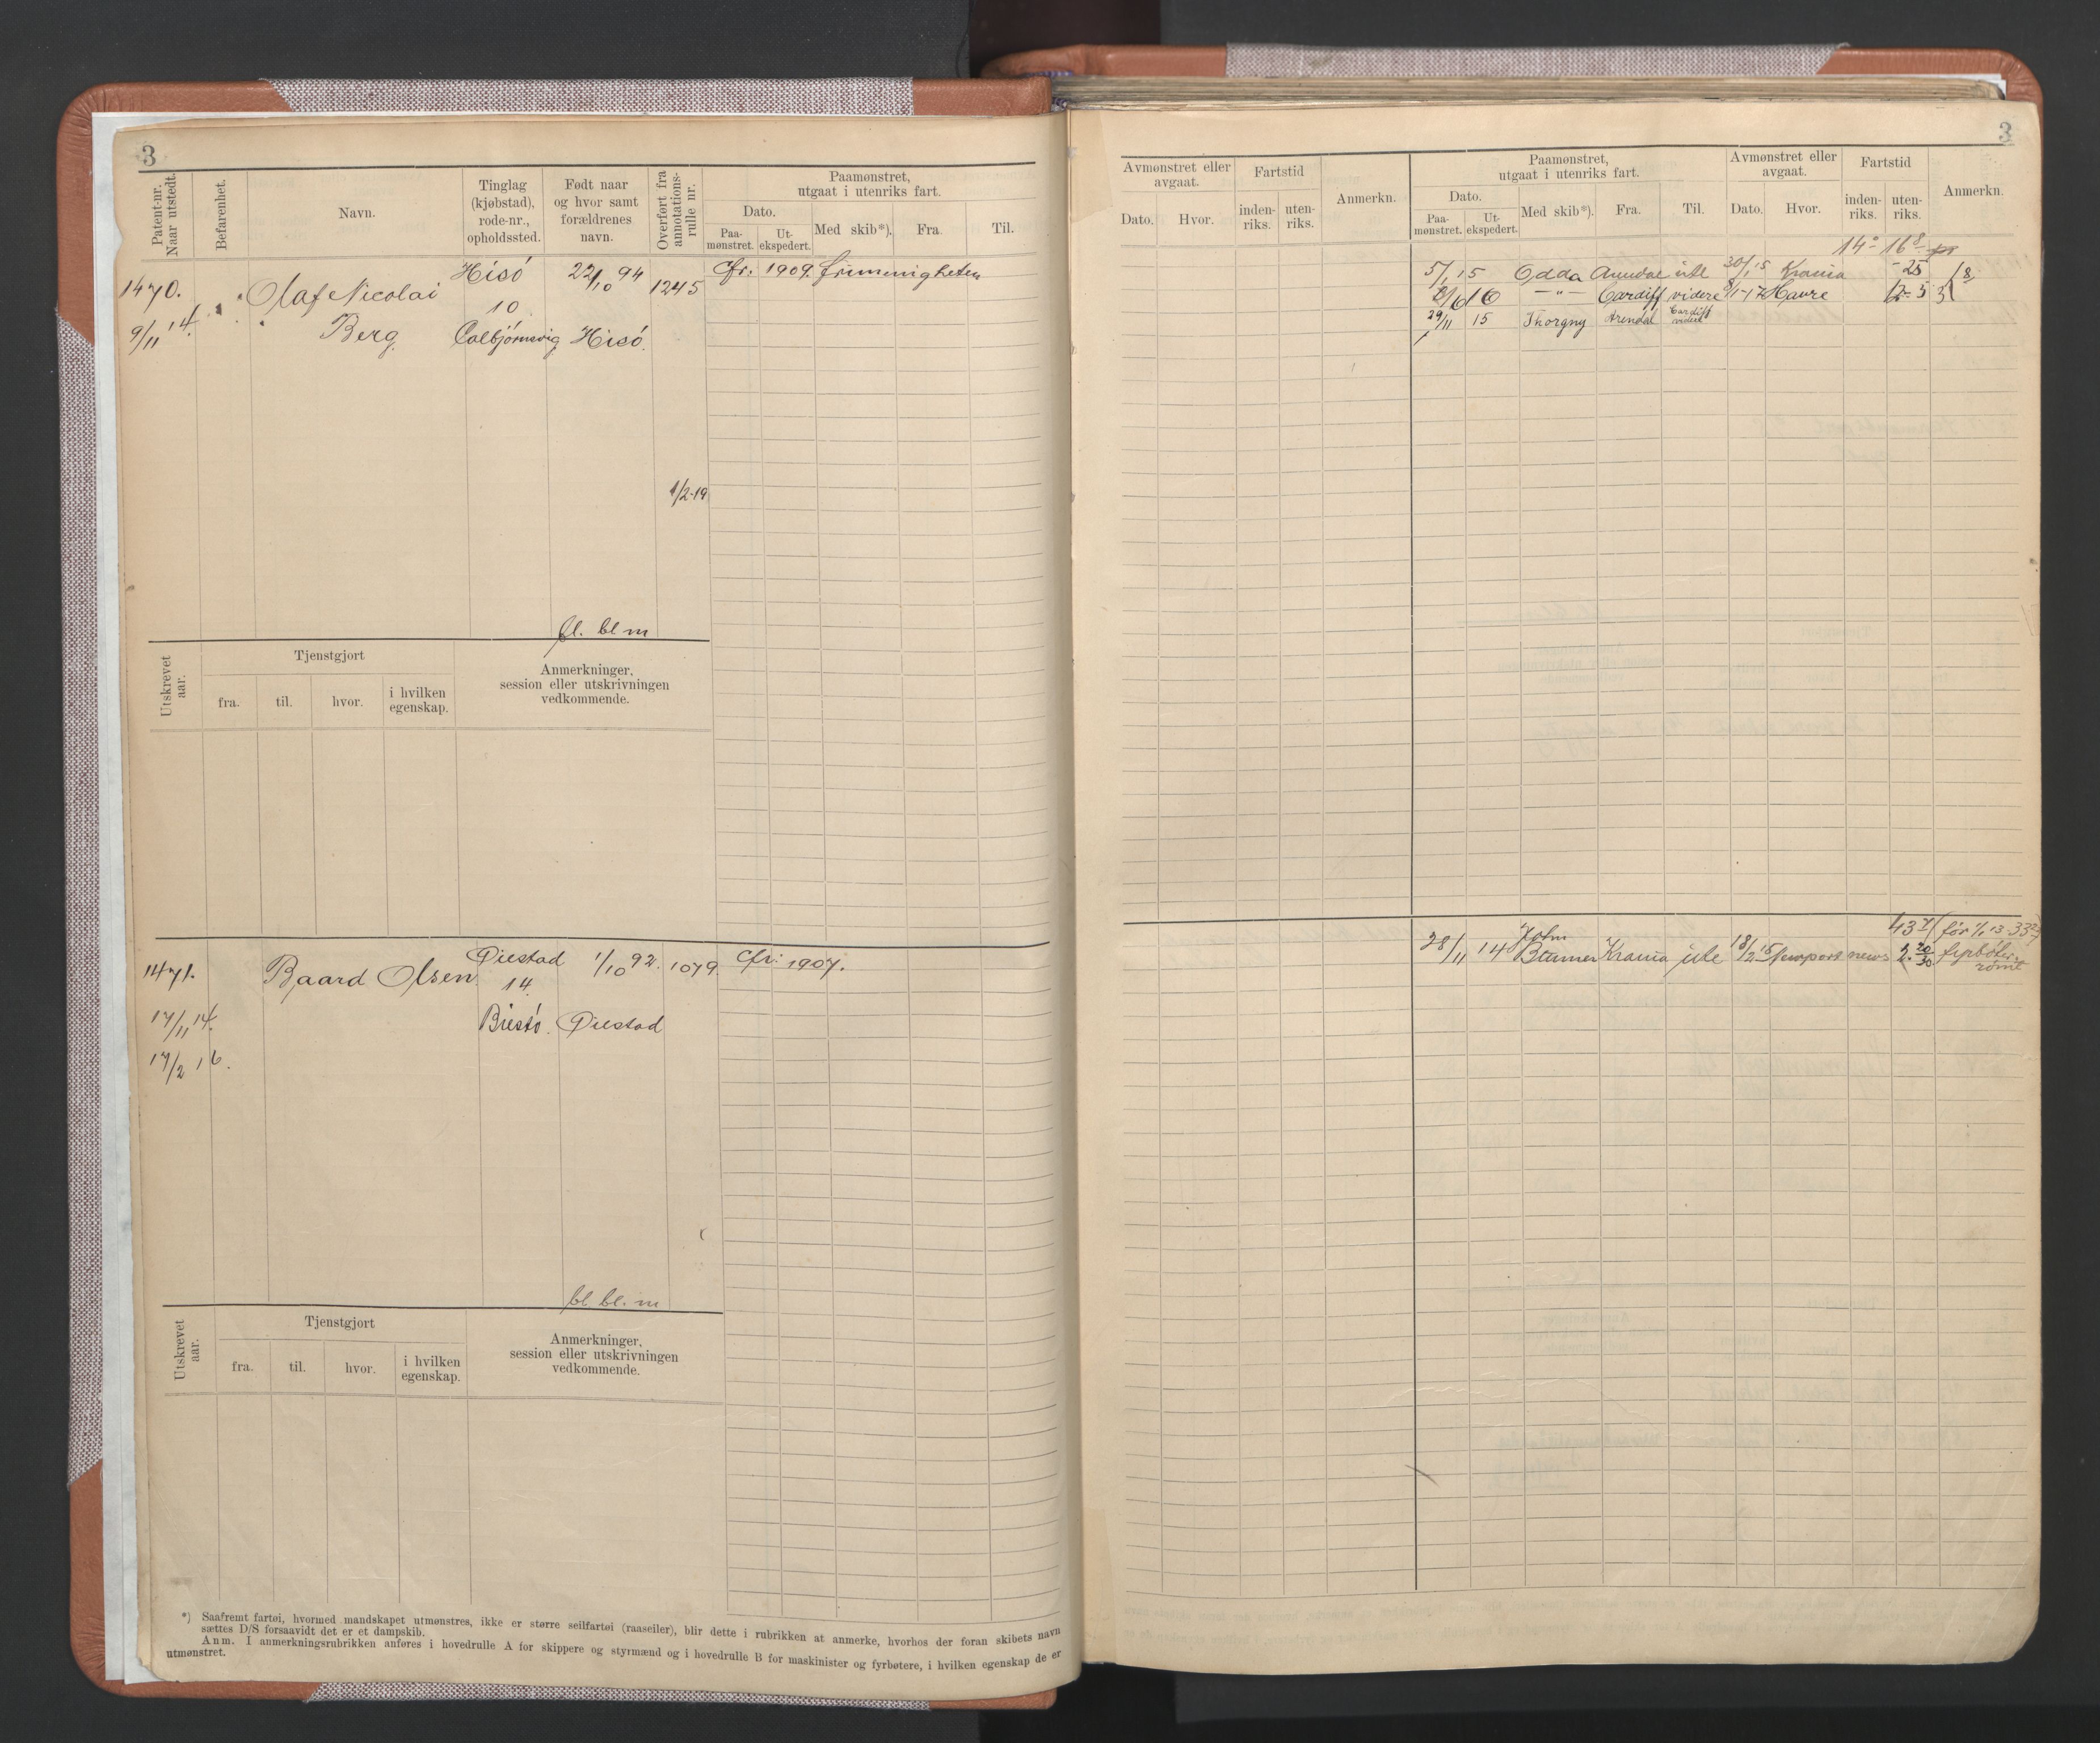 3
Patent-nr. Naar utstedt.
Befarenhet.
Navn.
Tinglag (kjøbstad), rode-nr., opholdssted.
Født naar og hvor samt forældrenes navn.
Overført fra annotations-rulle nr.
Paamønstret, utgaat i utenriks fart.
Dato.
Paa-mønstret.
Ut-ekspedert.
Med skib*).
Fra.
Til.
1470.
9/11 14.
Olaf Nicolai
Berg.
Hisö
10
Colbjörnsvig
22/10 94
Hisö.
1245
Cfr. 1909.
1/2-19
bl. bl m
Utskrevet aar.
Tjenstgjort
fra.
til.
hvor.
i hvilken egenskap.
Anmerkninger, session eller utskrivningen vedkommende.
1471.
17/11 14.
17/2 16.
Baard Olsen.
Öiestad
14.
1/10 92.
Öiestad
1079.
Cfr: 1907.
bl. bl. m
Utskrevet aar.
Tjenstgjort
fra.
til.
hvor.
i hvilken egenskap.
Anmerkninger, session eller utskrivningen vedkommende.
*) Saafremt fartøi, hvormed mandskapet utmønstres, ikke er større seilfartøi (raaseiler), blir dette i rubrikken at anmerke, hvorhos der foran skibets navn
sættes D/S forsaavidt det er et dampskib.
Anm. I anmerkningsrubrikken anføres i hovedrulle A for skippere og styrmænd og i hovedrulle B for maskinister og fyrbøtere, i hvilken egenskap de er
utmønstret.
3
Avmønstret eller avgaat.
Dato.
Hvor.
Fartstid
inden-riks.
uten-riks.
Anmerkn.
Paamønstret, utgaat i utenriks fart.
Dato.
Paa-mønstret.
Ut-ekspedert.
Med skib*).
Fra.
Til.
Avmønstret eller avgaat.
Dato.
Hvor.
Fartstid
inden-riks.
uten-riks.
Anmerkn.
5/1 15 Odda Arendal ute 30/1 15 Krania - 25
16 - " - Cardiff videre Havre
29/11 15 Thorgny Arendal Cardiff videre
28/11 14 John Krania ute 18/2 15 Newport news 2. 20/30 fyrbøter